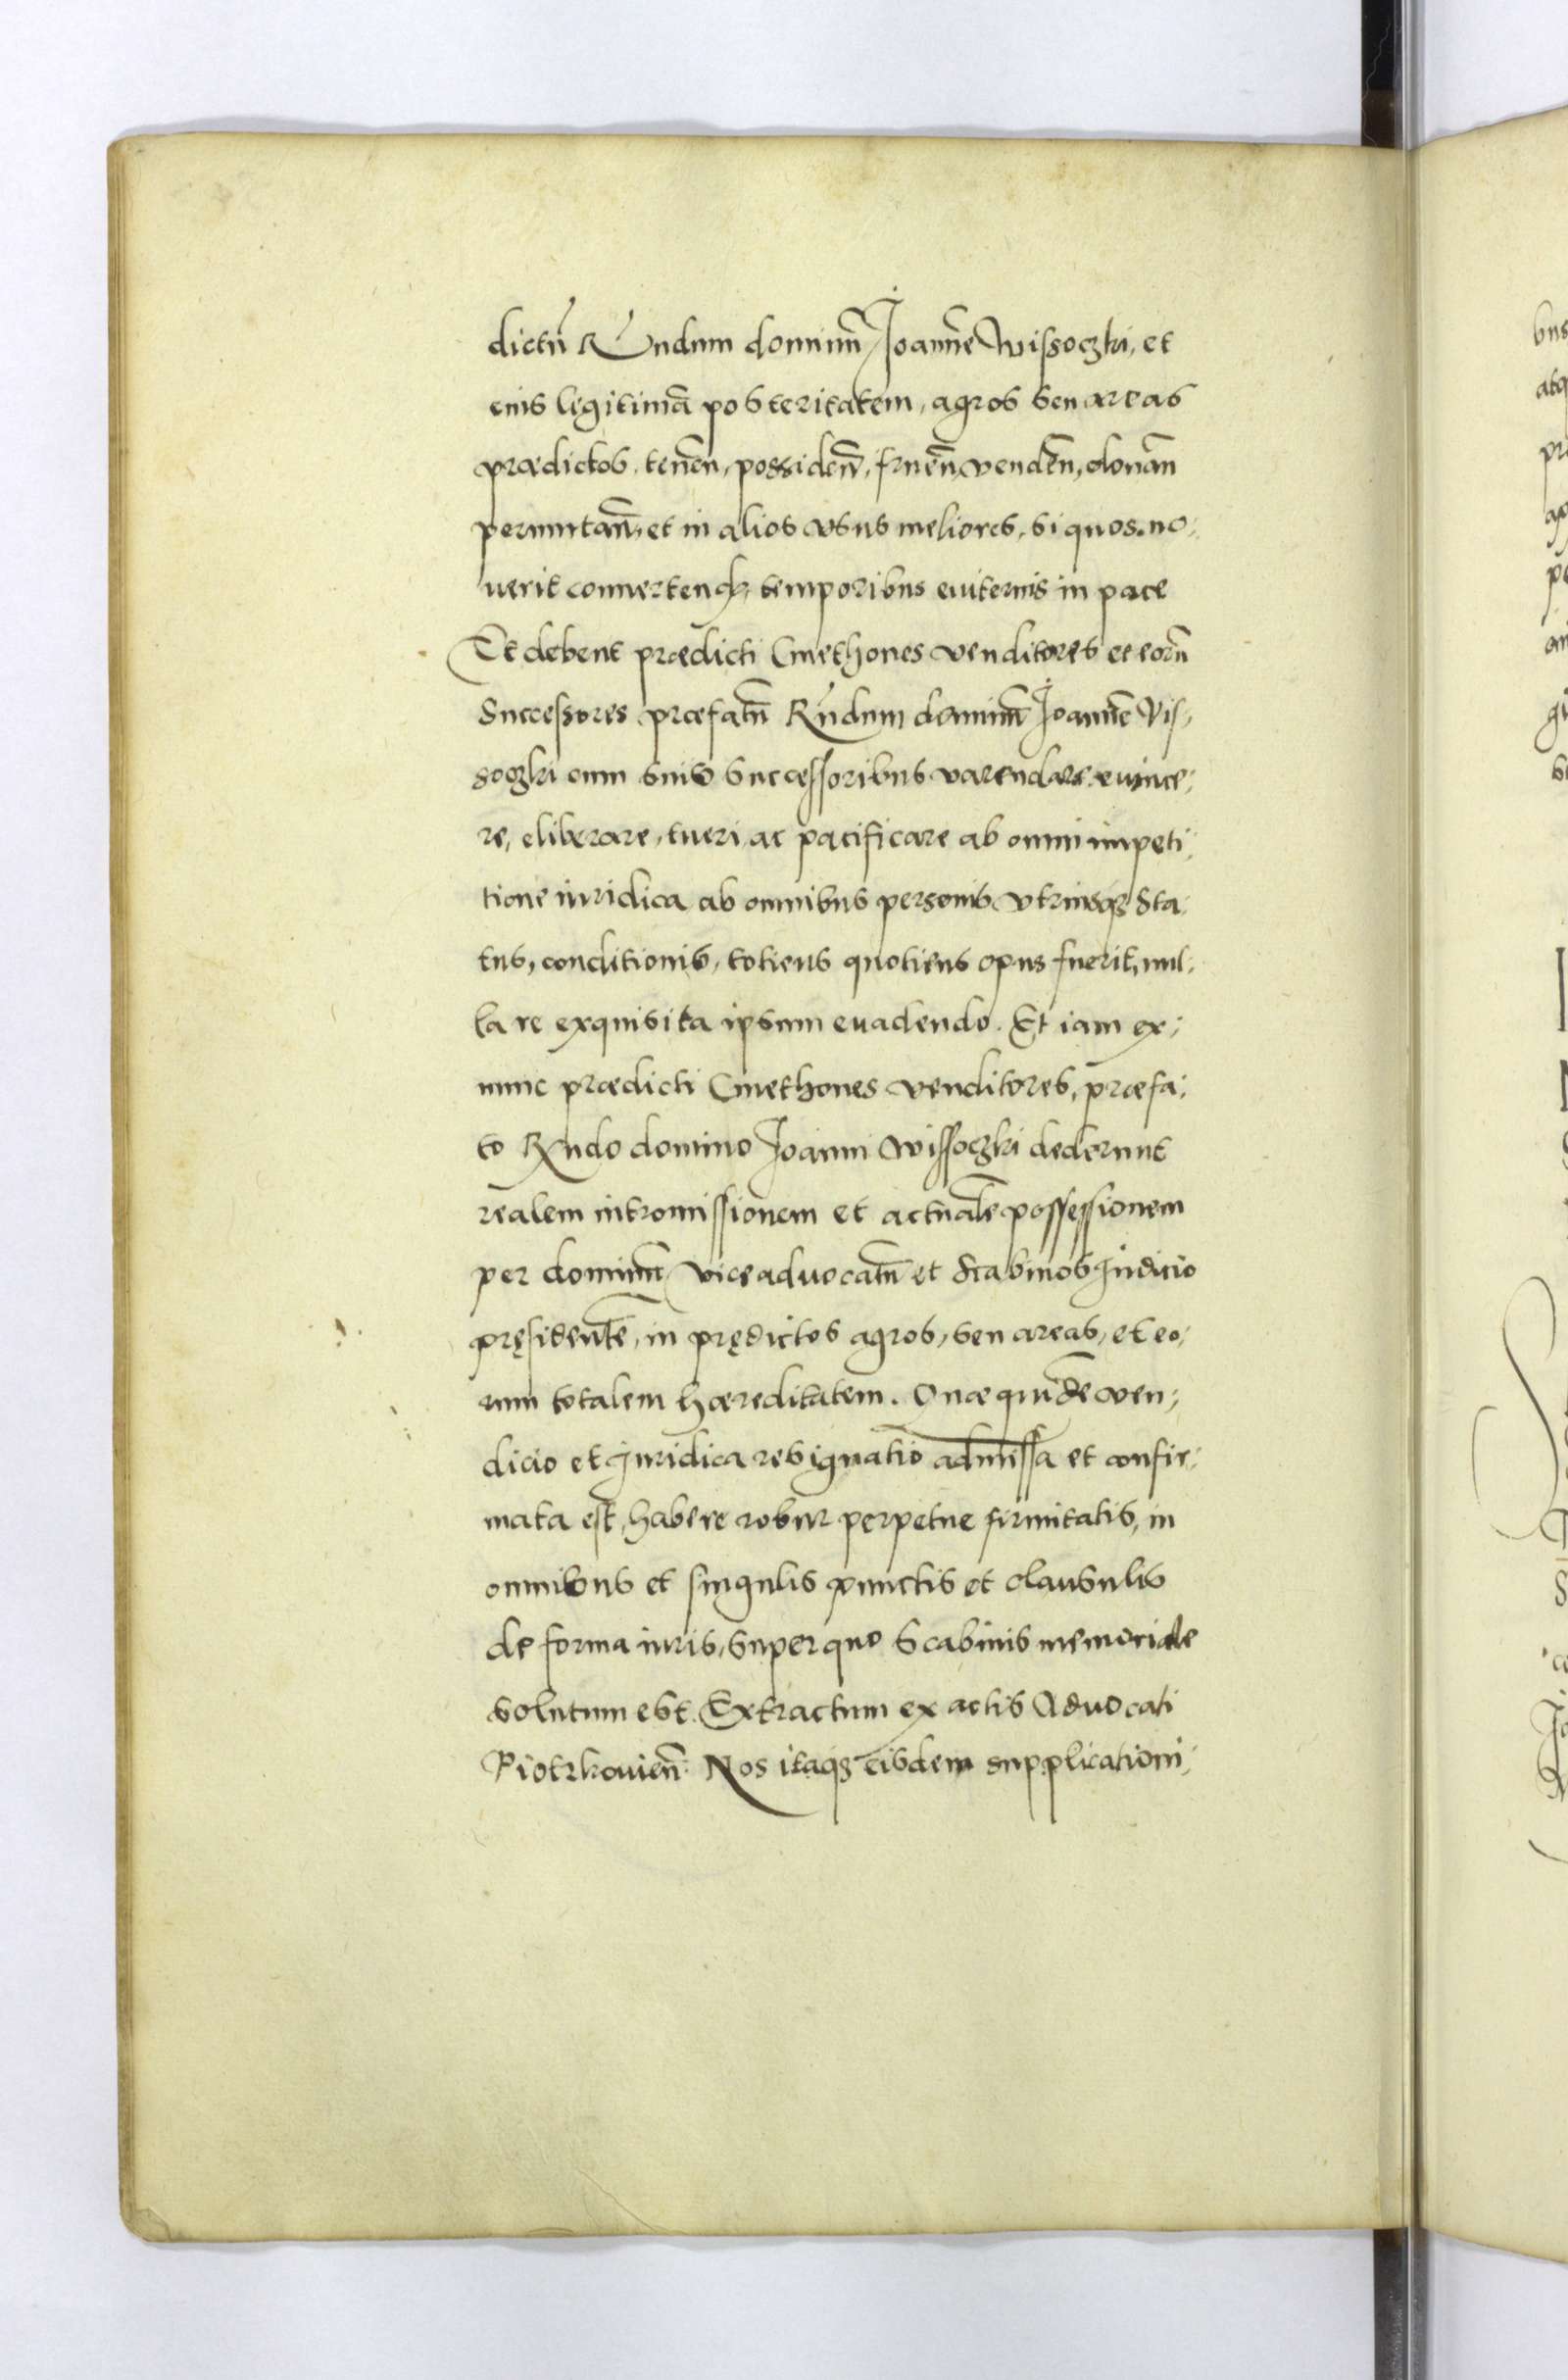 dictū Rndum dominū Joannē Wissoczki, et
eius legitimā posteritatem, agros seu areas
prædictos, tenēn, possidēn, fruēn, vendēn, donān
permutān, et in alios vsus meliores, si quos no-
uerit conuertendos, temporibus euiternis in pace
Et debent prædicti Cmethones venditores et eorū
Successores præfatū Rndum dominū Joannē Vis-
soczki cum suis successoribus varendare euince-
re, eliberare, tueri, ac pacificare ab omni impeti-
tione iuridica ab omnibus personis vtriusqꝫ Sta-
tus, conditionis, totiens quotiens opus fuerit, nul-
la re exquisita ipsum euadendo. Et iam ex-
nunc prædicti Cmethones venditores, præfa-
to Rndo domino Joanni Wissoczki dederunt
realem intromissionem et actualē possessionem
per dominū viceaduocatū et Scabinos Judicio
pręsidentē, in prędictos agros, seu areas, et eo-
rum totalem hæreditatem. Quæ quidē ven-
dicio et Juridica resignatio admissa et confir-
mata est, habere robur perpetue firmitatis, in
omnibus et singulis punctis et clausulis
de forma iuris, super quo Scabinis memoriale
solutum est. Extractum ex actis Aduocati
Piotrkouieñ. Nos itaqꝫ eisdem supplicationi-
bus
atq
pr
ap
pe